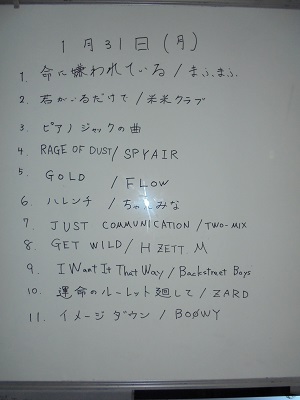 1月31日(月)
1. 命に嫌われている/まふまふ
2. 君がいるだけで/米米クラブ
3. ピアノジャックの曲
4. RAGE OF DUST/SPYAIR
5. GOLD/FLOW
6. ハレンチ/ちゃんみな
7. JUST COMMUNICATION/TWO-MIX
8. GET WILD/H ZETT M
9. I Want It That Way/Backstreet Boys
10. 運命のルーレット廻して/ZARD
11. イメージダウン/BOØWY